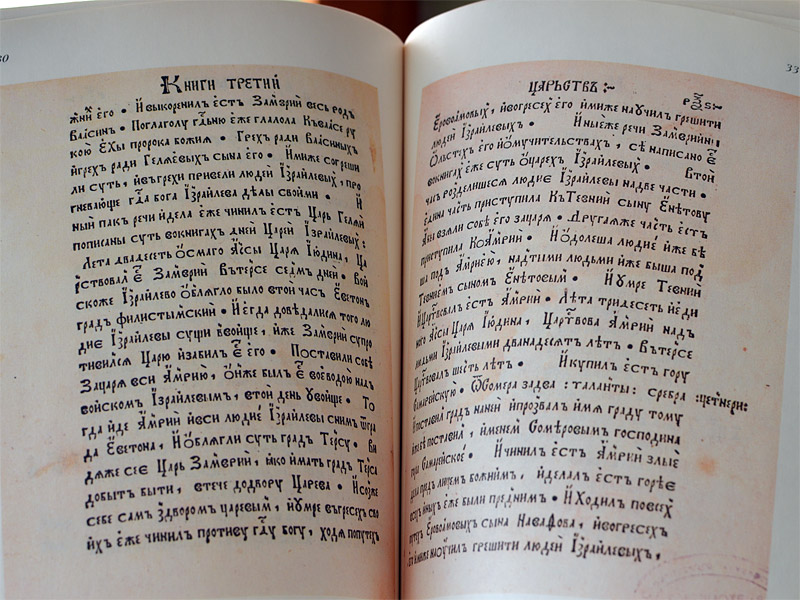 Книги третии
жнїй его • И выкоренилъ естъ Замврий весь родъ
Ваасинъ • Поглаголу гдⷭню еже глалола Къваасе ру
кою Ехы пророка божия • Грехъ ради Ваасиныхъ
йгрехъ ради Гелаевыхъ сына его • Ииже согреши
ли суть, ивъгрехи привели людей Їзраилевыхъ, про
гневающе гдⷭа бога Їзраилева делы своими • И
ный пакъ речи идела еже чинилъ естъ Царь Гелаий
пописаны суть вокнигахъ дней Царей Їзраилевыхъ :
Лета двадесетъ осмаго Асы Царя Їюдина, Ца
рствовалъ е̃ Замврий Вътерсе седмъ дней • Вой
скоже Їзраилево облягло было втой часъ Еветонъ
градъ филистымский • Иегда доведалися того лю
дие Їзраилевы сущи ввойще, иже Замврий супро
тивился Царю изабилъ е̃ его • Поставили собе
Зацаря вси Амрию, онже былъ е̃ воеводою надъ
войскомъ Їзраилевымъ, втой день увойще • То
гда йде Амрий ивси людие Їзраилевы снимъ
да Еветона, Иоблягли суть градъ Терсу • Ви
дяже сие Царь Замврий, яко имать градъ Терса
добытъ быти, втече додвору Царева • Исожже
себе самъ здворомъ царевым, иумре въгресехъ сво
ихъ еже чинилъ противу гдⷭу богу, ходя попутехъ
30
33
Царьствъ :~
Еровоамовыхъ, ивогресех его имиже научил грешити
людей Їзраилевыхъ • Иныеже речи Замврийни
Ольстяхъ его иомучительствахъ, сѣ написано е̃
вокнигахъ еже суть оцарехъ Їзраилевыхъ • Втой
часъ розделишеся людие Їзраилевы надве части •
Едина часть приступила Къ Тевний сыну Енѣтову
Абы взяли собѣ его зацаря • Другаяже часть естъ
приступила Ко Амрий • Иодолеша людие иже бѣ
ша подъ Амриею, надтыми людьми йже быша под
Тевниемъ сыномъ Енѣтовым • Иумре Тевний
Ицартвовалъ естъ Амрий • Лѣта тридесеть йеди
ного Асы Царя Їюдина, Царствова Амрий надъ
людьми Їзраилевыми дванадесятъ лѣтъ • Вътерсе
Царствовалъ шесть лѣтъ • Икупилъ естъ гору
Самарейскую • ѿСомера задва : таланты : сребра : цетнери :
Ипоставил градъ наней ипрозвалъ имя граду тому
иже поставил, именем Сомѣровым господина
горы Самарейское • Ичинилъ естъ Амрий злые
дела предъ лицемъ божиимъ, иделалъ естъ горѣе
всѣхъ иныхъ еже были предним • Иходил повсѣх
путех Еровоамовых сына Наватова, ивогресех
его имиже наоучилъ грешити людей Їзраилевых,